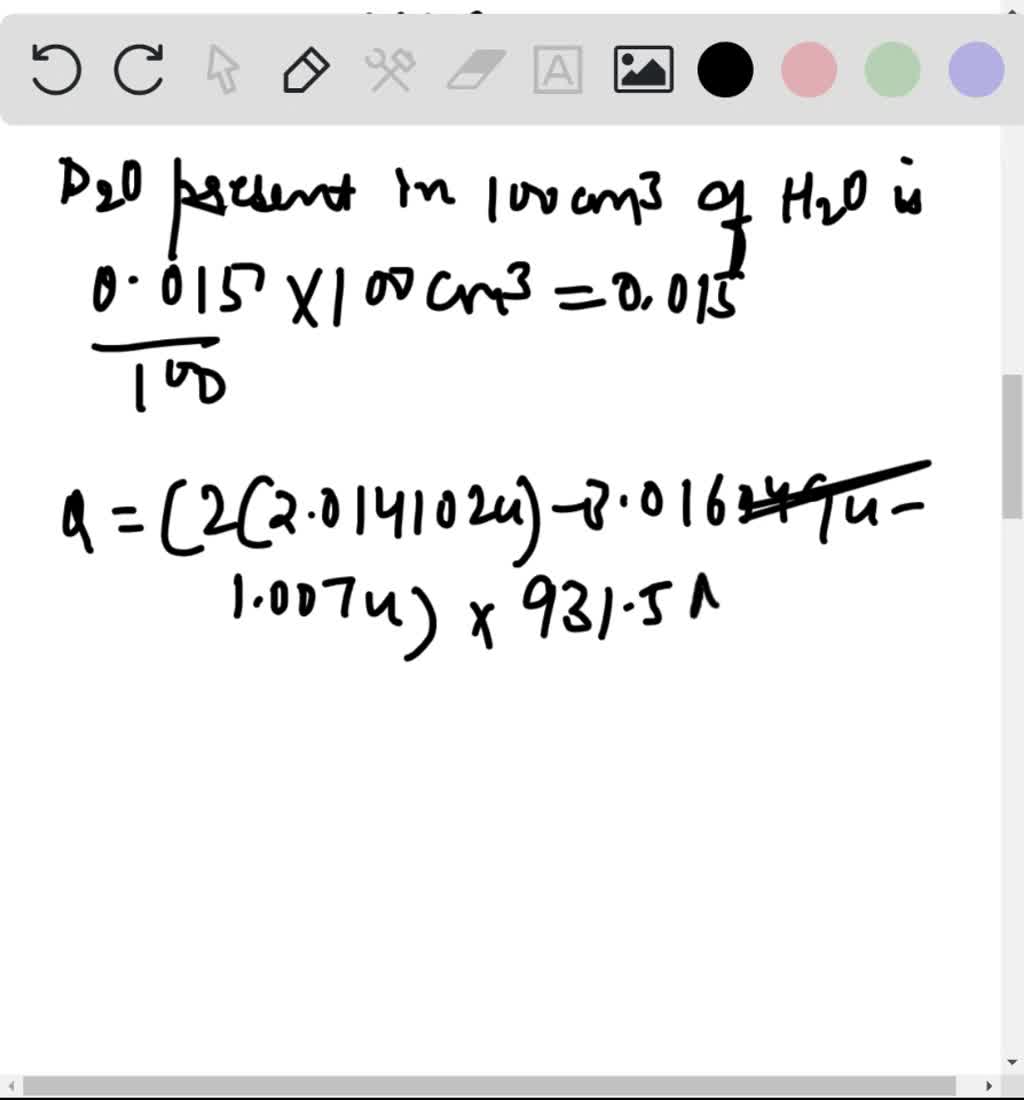 D2O present in 100 cm3 of H2O is
0.015 × 100 cm3 = 0.015
100
Q = (2(2.014102u) - 3.016 u -
1.007u) × 931.5 M
A